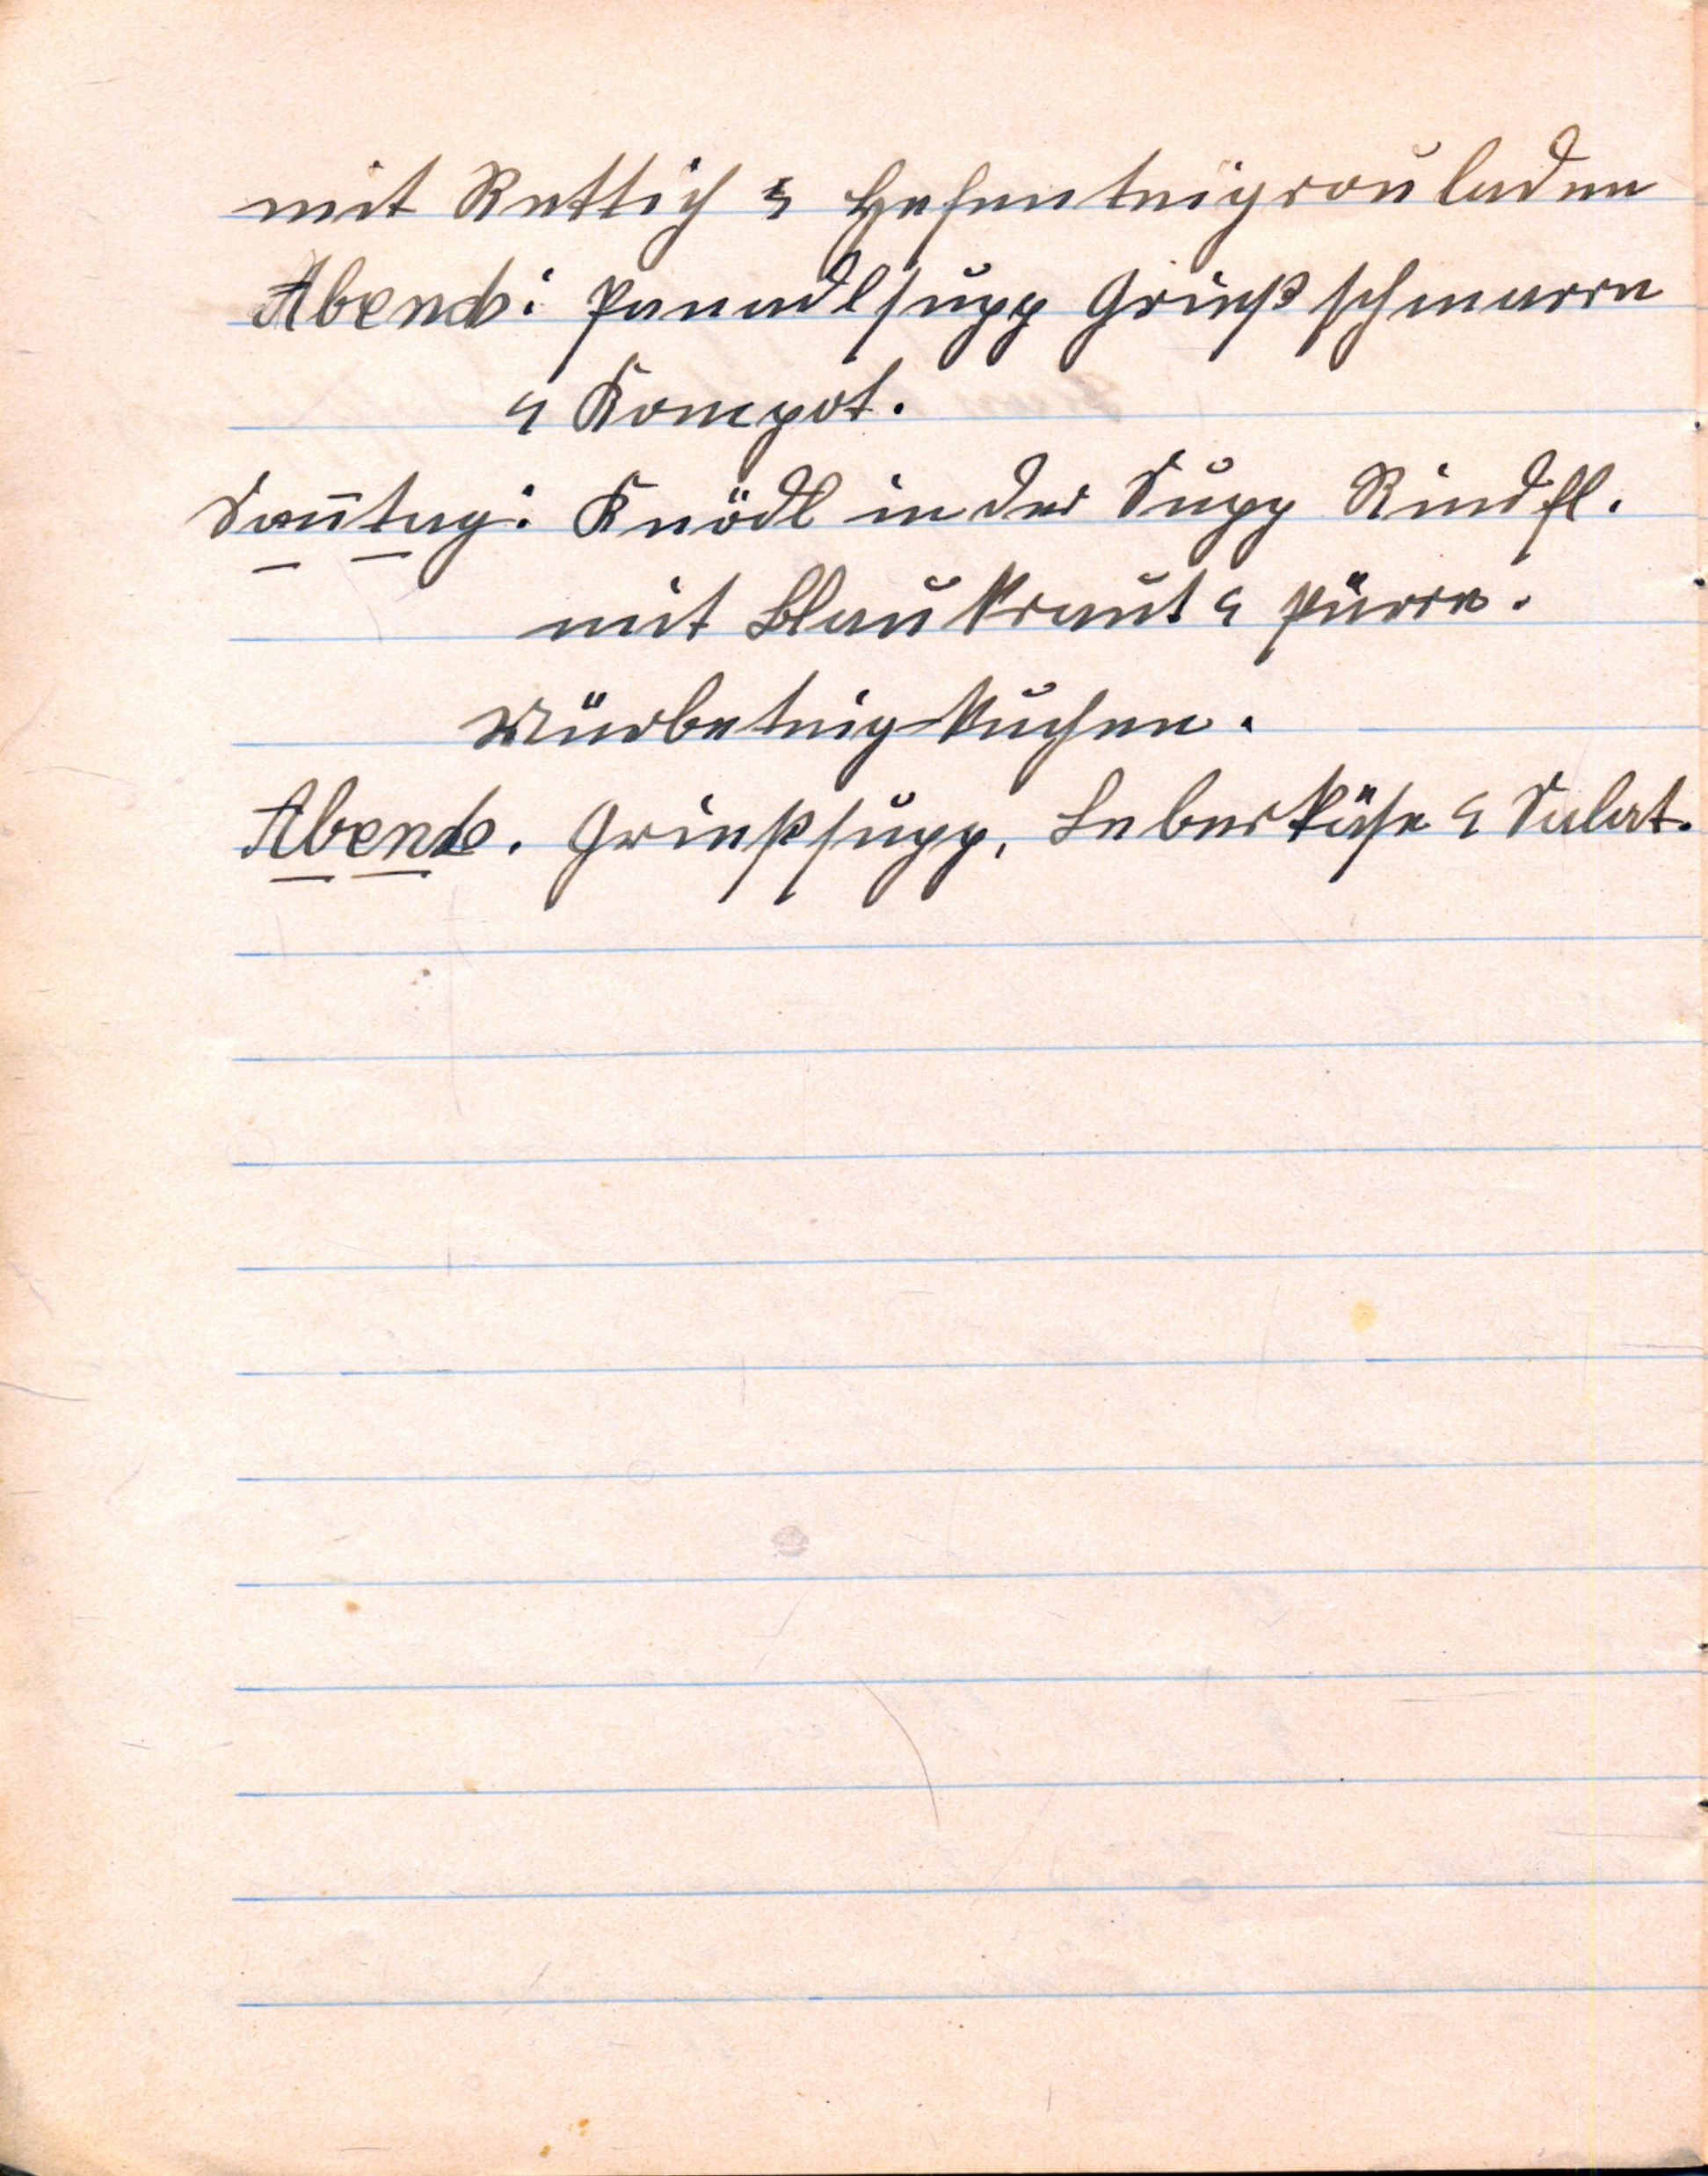 mit Rettich & Hefenteigrouladen
Abends: Panadlsupp Grießschmarrn
& Kompot.
Soñtag: Knödl in der Supp Rindfl.
mit Blaukraut & Pürre.
Mürbeteigkuchen.
Abends. Grießsupp, Leberkäse & Salat.